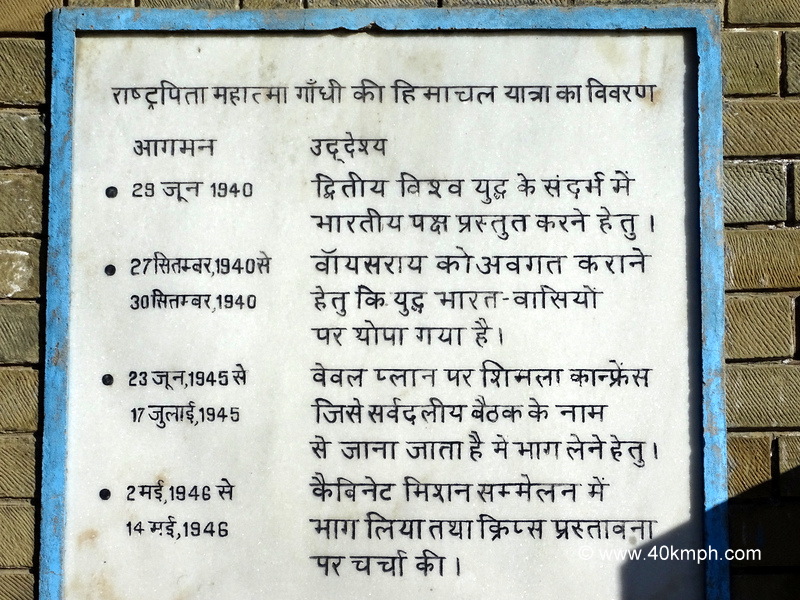 राष्ट्रपिता महात्मा गाँधी की हिमाचल यात्रा का विवरण
आगमन उद्देश्य
• 29 जून 1940 द्वितीय विश्व युद्ध के संदर्भ में
भारतीय पक्ष प्रस्तुत करने हेतु ।
• 27 सितम्बर,1940 से वॉयसराय को अवगत कराने
30 सितम्बर,1940 हेतु कि युद्ध भारत-वासियों
पर थोपा गया है ।
• 23 जून,1945 से वेवल प्लान पर शिमला कान्फ्रेंस
17 जुलाई,1945 जिसे सर्वदलीय बैठक के नाम
से जाना जाता है मे भाग लेने हेतु ।
• 2 मई,1946 से कैबिनेट मिशन सम्मेलन में
14 मई,1946 भाग लिया तथा क्रिप्स प्रस्तावना
पर चर्चा की ।
© www.40kmph.com